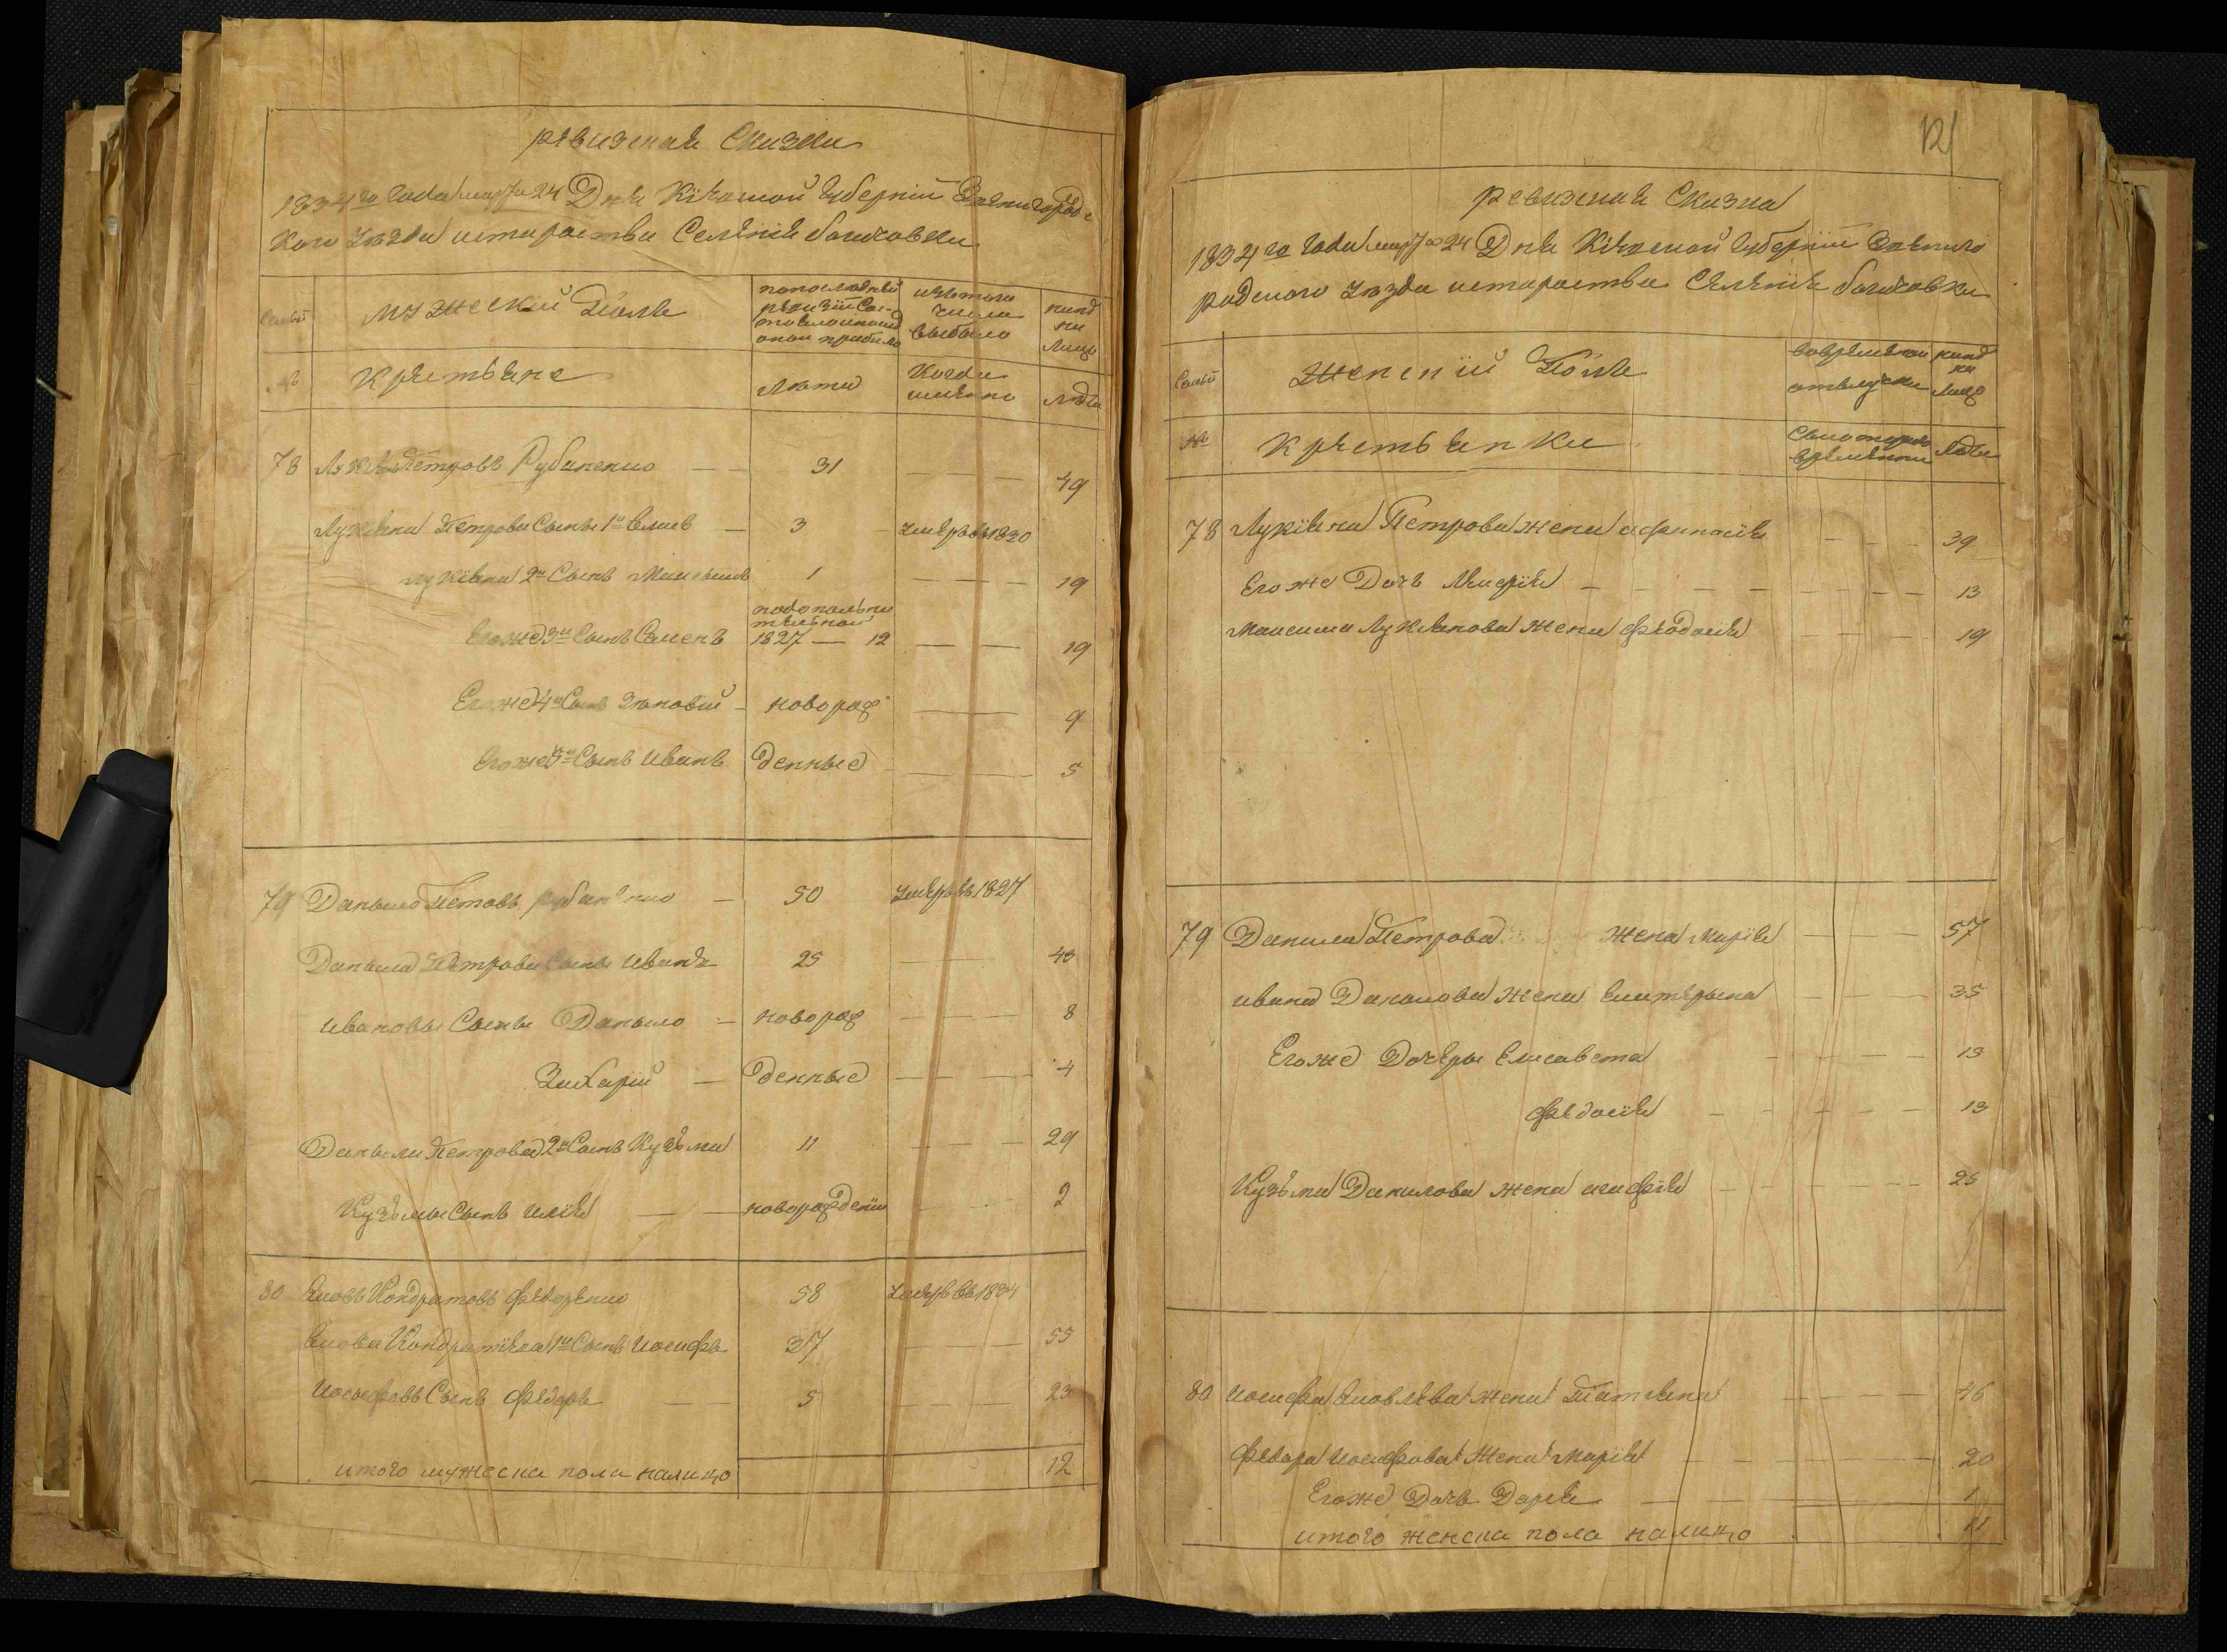 ревизская Сказка
1834го года марта 24 Дня Кіевской губерніи Звенигородс
кого уезда староства Селенія богачовки
Семьи
мужеский Полъ
попоследней ревизіи состояло и после оной прибыло
изътого числа выбыло
ныне на лицо
№
Крестьяне
Лета
Когда именно
Лета
78 Лукянъ Петровъ Рубаненко — — 31 — — 49
Лукяна Петрова Сынъ 1й — 3 умеръ въ 1830
Лукіяна 2й Сынъ Максымъ 1 — — — 19
подополнительной
Егоже 3й Сынъ Семенъ 1827 — 12 — — 19
Егоже 4й Сынъ Зѣновій — новорож — — 9
Егоже 5й Сынъ Иванъ денные — — — 5
79 Даныло Петовъ рубаненко — 50 умеръ въ 1827
Даныла Петрова Сынъ Иванъ 25 — — 43
Ивановы Сыны Даныло — новорож — — — 8
Захарій — денные — — — 4
Данылы Петрова 2й Сынъ Кузьма 11 — — — 29
Кузьмы Сынъ Илія — — новорожденій — — 2
80 Яковъ Кондратовъ Федоренко 58 умеръ въ 1834
Якова Кондратіева 1й Сынъ Иосифъ 37 — — — 55
Иосыфовъ Сынъ Федоръ — — 5 — — — 23
итого мужеска пола налицо 12
121
ревизская Сказка
1834го года марта 24 Дня Кіевской губерніи Звениго
родского уезда староства Селенія богачовки
Семьи
Женский Полъ
вовременной отлучке
ныне на лицо
№
Крестьянки
Лета
78 Лукіяна Петрова жена афанасія — — — 39
Егоже Дочь — — — — — 13
Максима Лукянова жена Феодосія — — — 19
79 Данила Петрова жена Марія — — — 57
Ивана Данылова жена Екатерына — — — 35
Егоже Дочери Елисавета — — — 15
Федосія — — — — — 13
Кузьмы Данилова жена агафія — — — — 25
80 Иосифа Яковлева жена Татіяна — — — — 46
Федора Иосифова жена Марія — — — — 20
Егоже Дочь Дарія — — 1
итого женска пола налицо 11